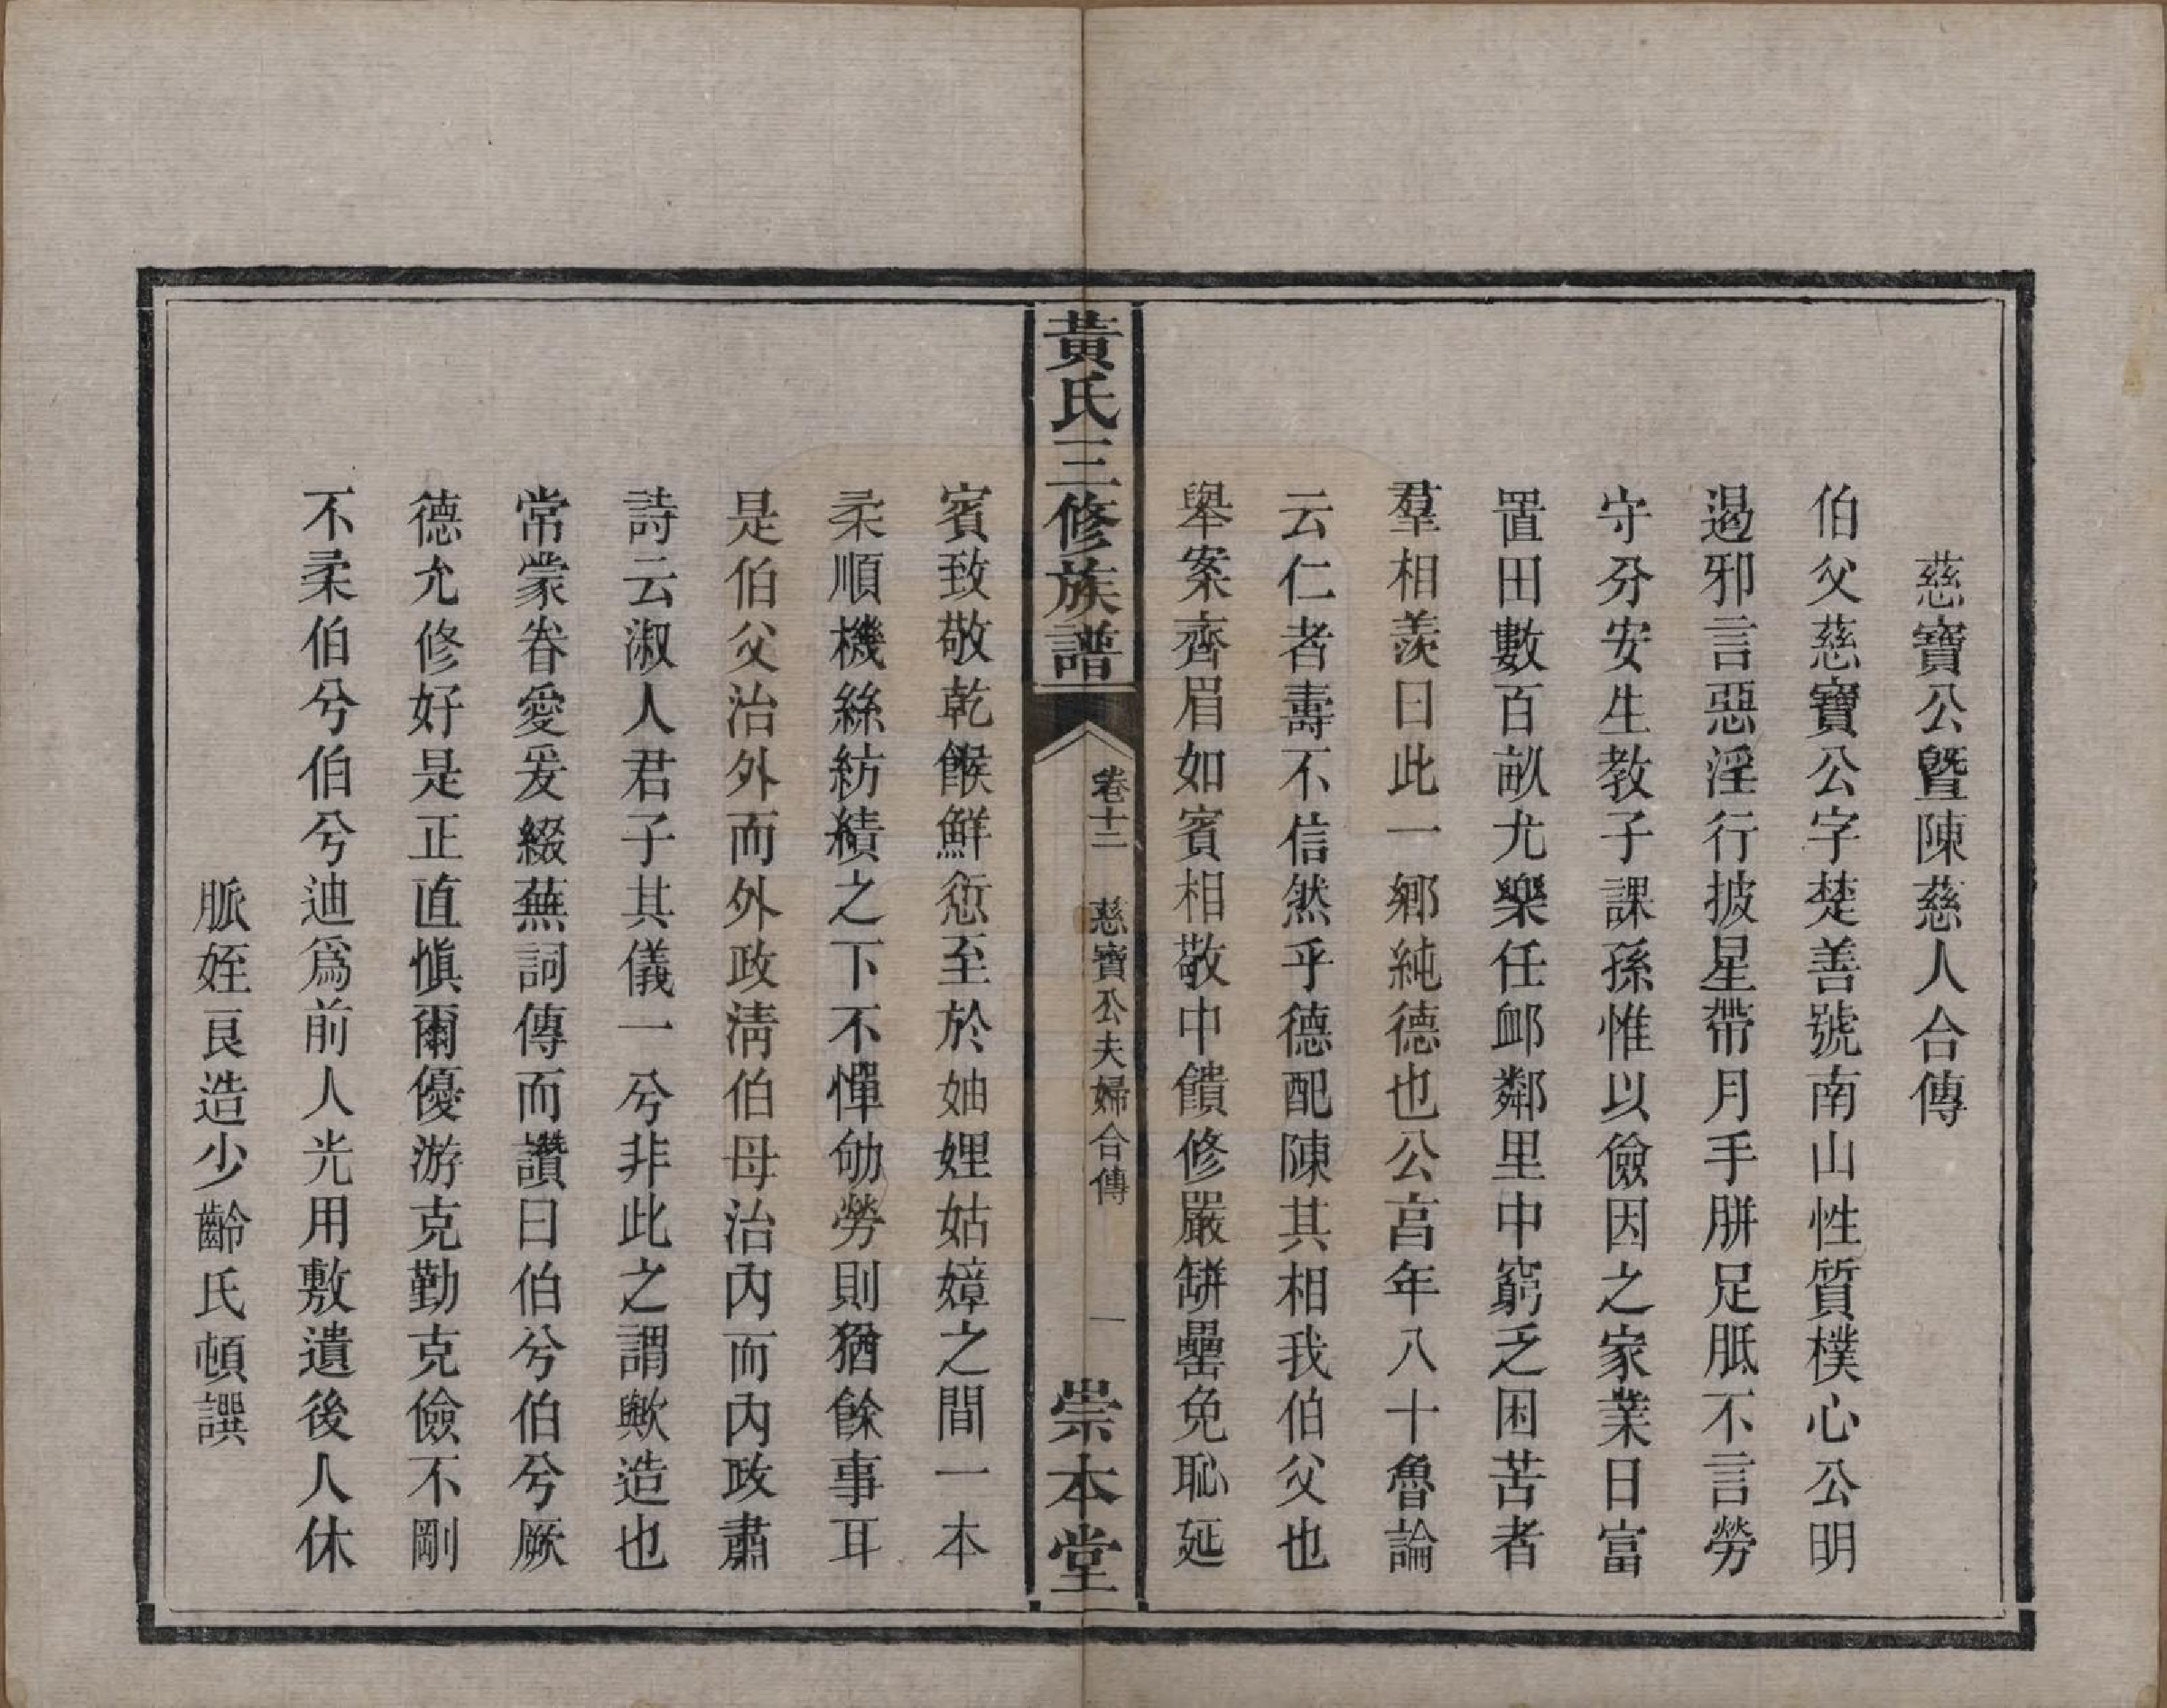 慈寶公曁陳慈人合傳
伯父慈寶公字楚善號南山性質樸心公明
遏邪言惡淫行披星帶月手胼足胝不言勞
守分安生教子課孫惟以儉因之家業日富
置田數百畝尤樂任卹鄰里中窮乏困苦者
羣相羨曰此一鄉純德也公亯年八十魯論
云仁者壽不信然乎德配陳其相我伯父也
舉案齊眉如賓相敬中饋修嚴缾罍免恥延
黃氏三修族譜
卷十二
慈寶公夫婦合傳
一
崇本堂
賓致敬乾餱鮮愆至於妯娌姑嫜之間一本
柔順機絲紡績之下不憚劬勞則猶餘事耳
是伯父治外而外政淸伯母治內而內政肅
詩云淑人君子其儀一兮非此之謂歟造也
常蒙眷愛爰綴蕪詞傳而讚曰伯兮伯兮厥
德允修好是正直愼爾優游克勤克儉不剛
不柔伯兮伯兮迪爲前人光用敷遺後人休
脈姪良造少齡氏頓譔